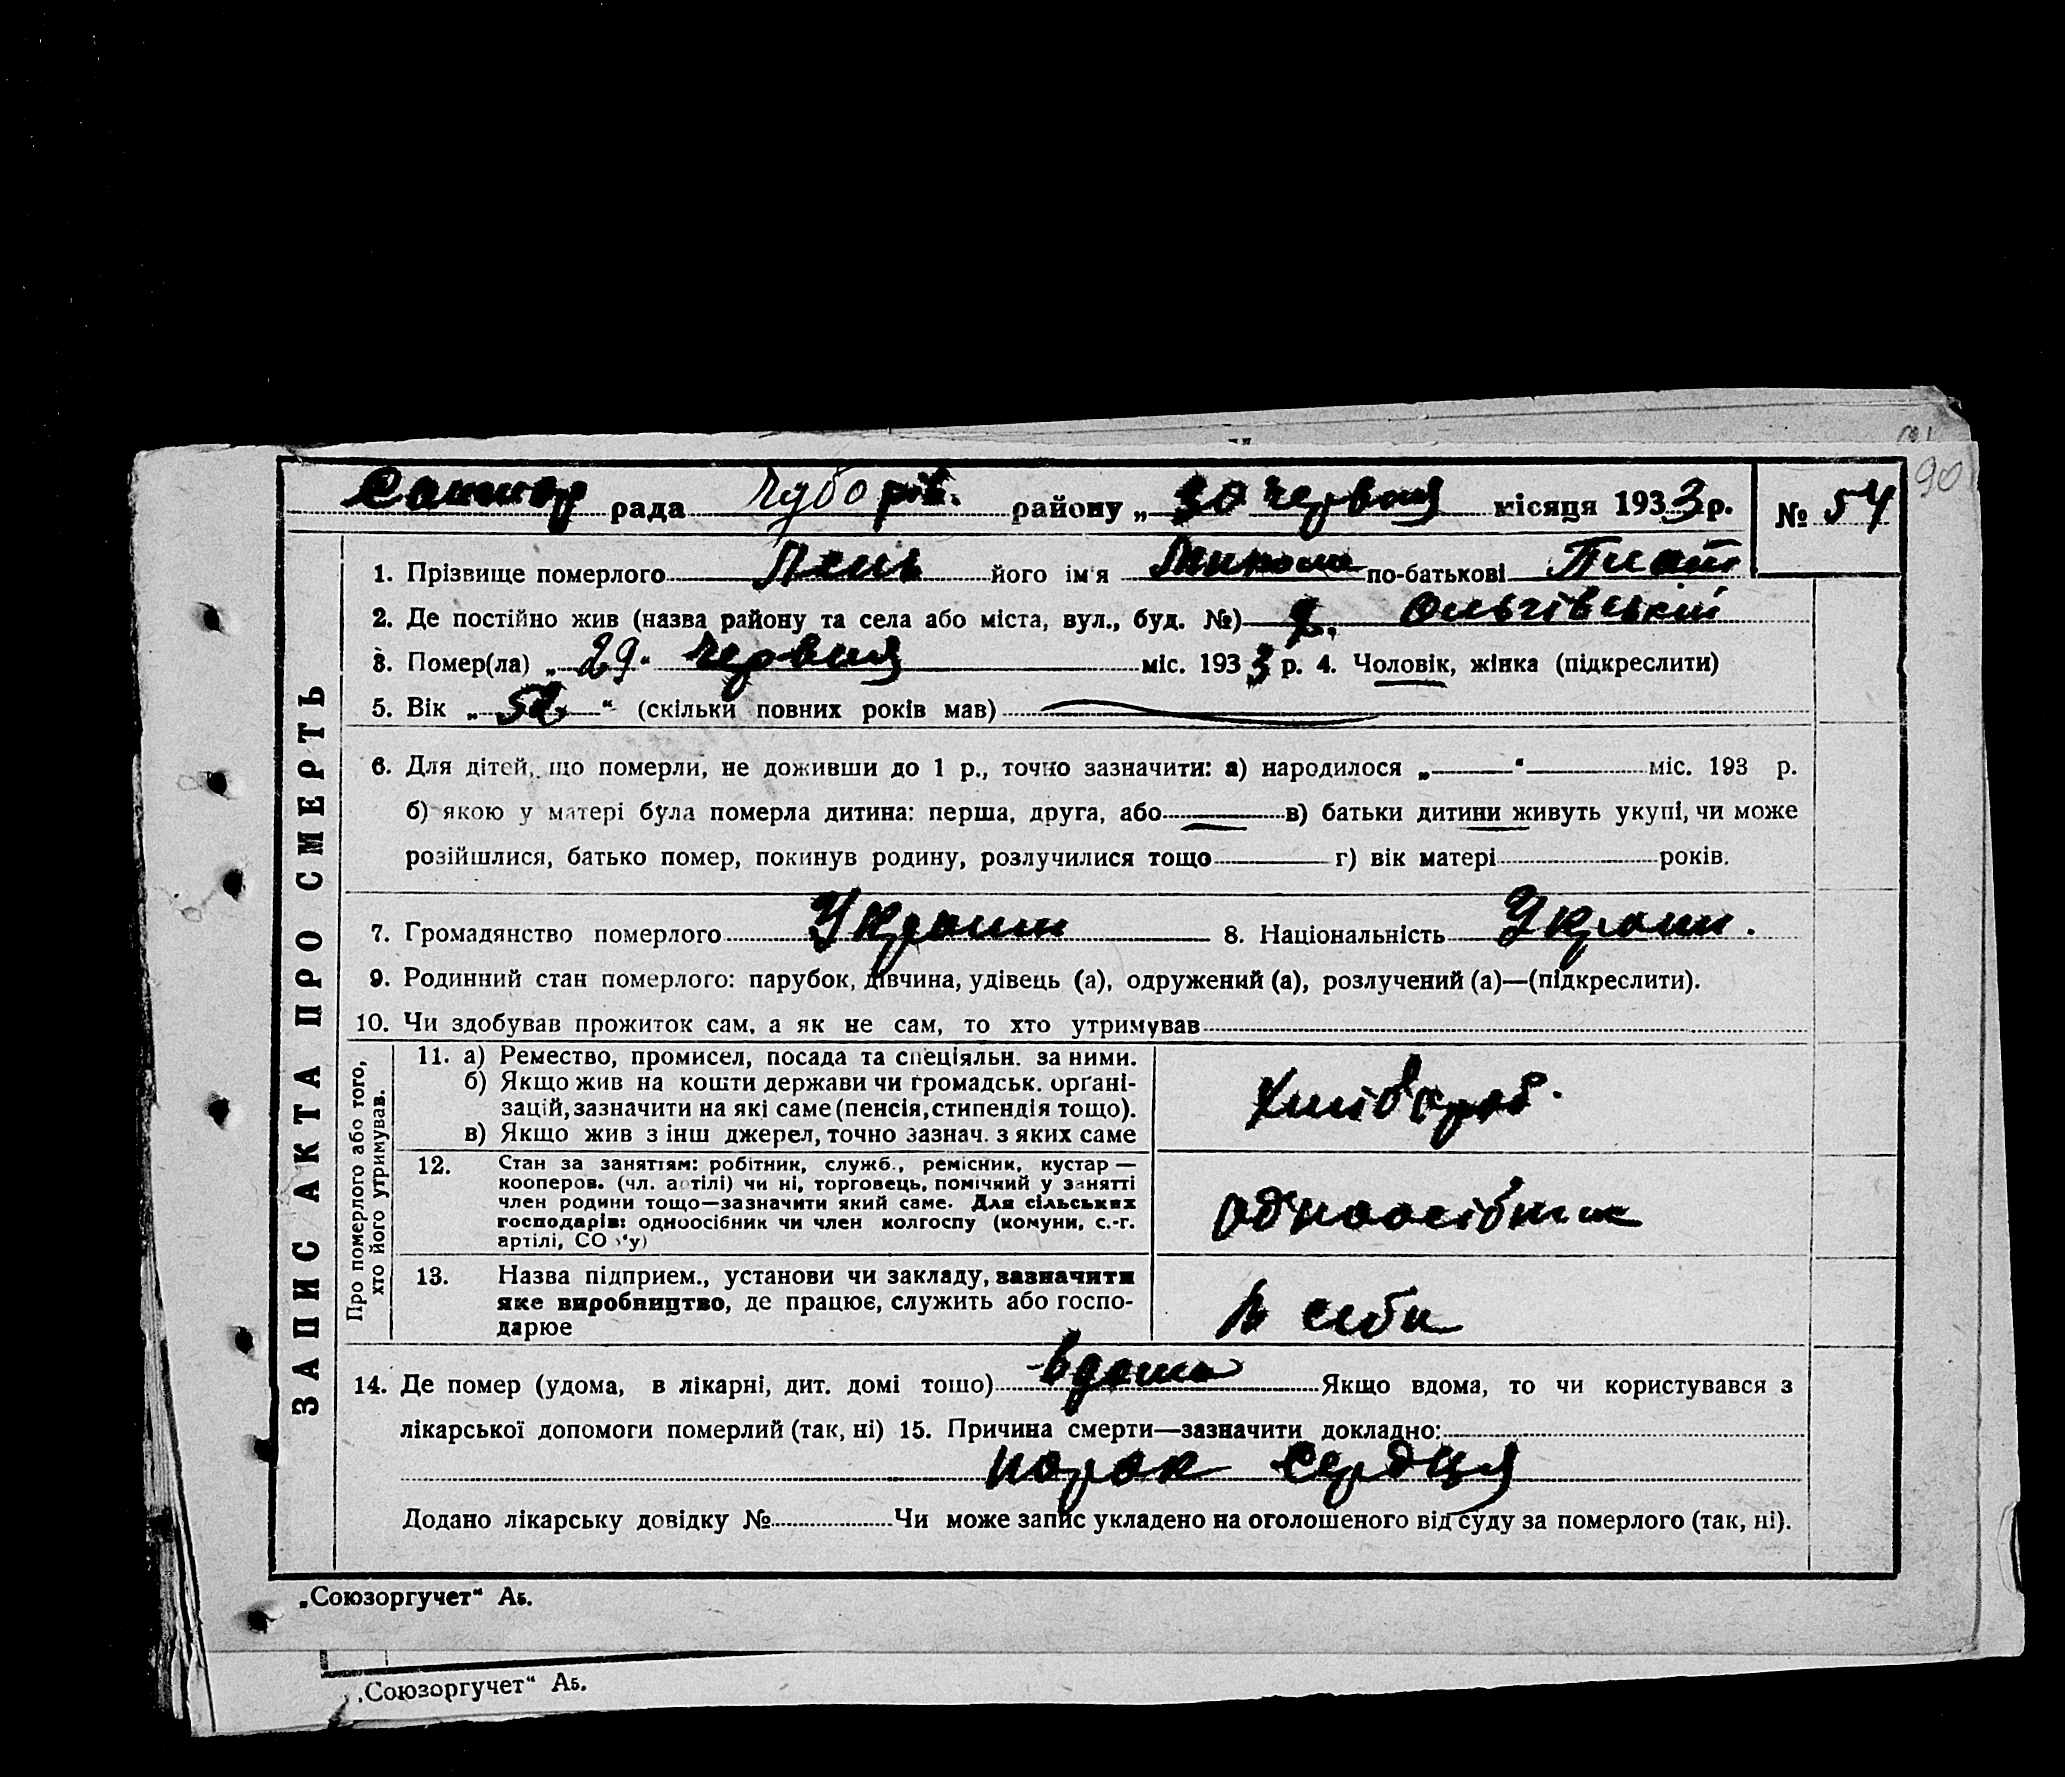 90
рада Чубарів. району „30 червня місяця 1933 р. № 54
1. Прізвище померлого Лень його ім'я Микола по-батькові Плат
2. Де постійно жив (назва району та села або міста, вул., буд. №) Ольгівській
3. Помер(ла) „29“ червня міс. 1933 р. 4. Чоловік, жінка (підкреслити)
5. Вік „ “ (скільки повних років мав)
6. Для дітей, що померли, не доживши до 1 р., точно зазначити: а) народилося „ “ міс. 193 р.
б) якою у матері була померла дитина: перша, друга, або в) батьки дитини живуть укупі, чи може
розійшлися, батько помер, покинув родину, розлучилися тощо г) вік матері років.
7. Громадянство померлого Україн 8. Національність Україн.
9. Родинний стан померлого: парубок, дівчина, удівець (а), одружений (а), розлучений (а)—(підкреслити).
10. Чи здобував прожиток сам, а як не сам, то хто утримував
ЗАПИС АКТА ПРО СМЕРТЬ
Про померлого або того,
хто його утримував.
11. а) Ремество, промисел, посада та спеціяльн. за ними.
б) Якщо жив на кошти держави чи громадськ. орґані-
зацій, зазначити на які саме (пенсія, стипендія тощо).
в) Якщо жив з інш джерел, точно зазнач. з яких саме
Хліброб.
12. Стан за заняттям: робітник, служб., ремісник, кустар —
кооперов. (чл. артілі) чи ні, торговець, помічний у занятті
член родини тощо—зазначити який саме. Для сільських
господарів: одноосібник чи член колгоспу (комуни, с.-г.
артілі, СО у)
одноосібник
13. Назва підприєм., установи чи закладу, зазначити
яке виробництво, де працює, служить або госпо-
дарює
в себи
14. Де помер (удома, в лікарні, дит. домі тощо) вдома Якщо вдома, то чи користувався з
лікарської допомоги померлий (так, ні) 15. Причина смерти—зазначити докладно:
порок сердця
Додано лікарську довідку № Чи може запис укладено на оголошеного від суду за померлого (так, ні).
„Союзоргучет“ А5.
„Союзоргучет“ А5.